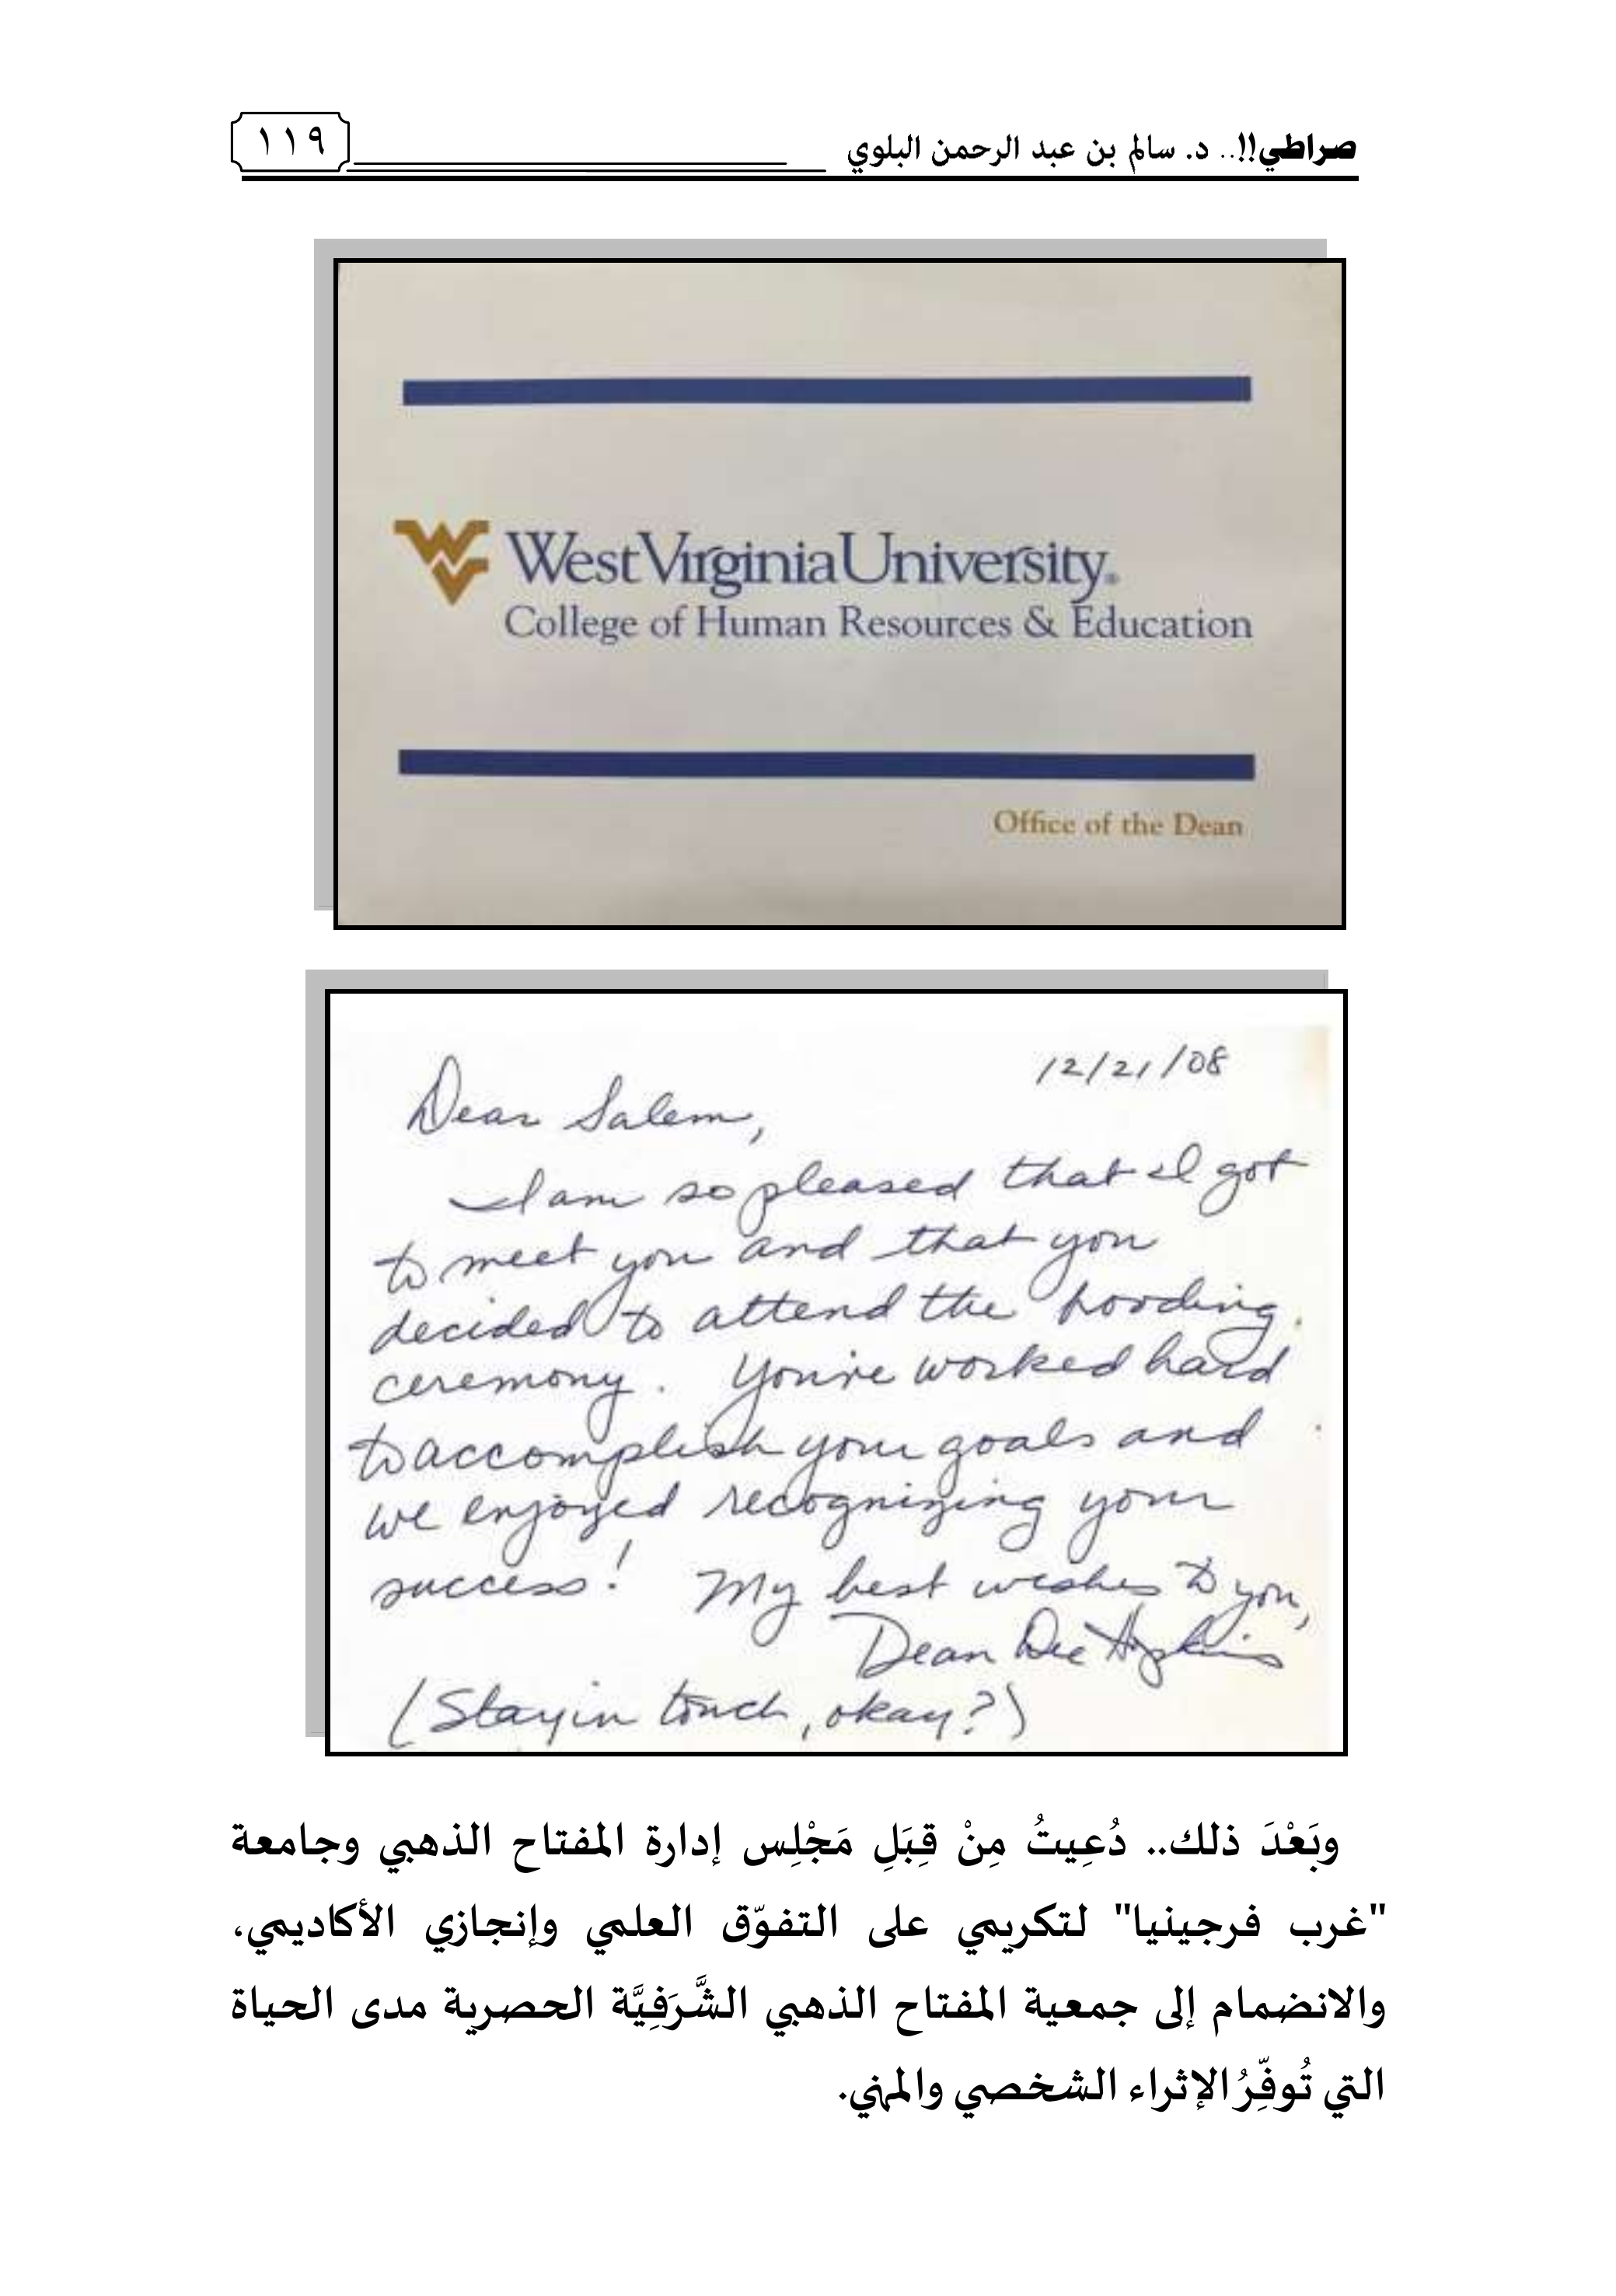 صراطي!!.. د. سالم بن عبد الرحمن البلوي
١١٩
West Virginia University®
College of Human Resources & Education
Office of the Dean
12/21/08
Dear Salem,
I am so pleased that I got
to meet you and that you
decided to attend the hooding
ceremony. You've worked hard
to accomplish your goals and
we enjoyed recognizing your
success! My best wishes to you,
Dean Dee Hopkins
(Stay in touch, okay?)
وبَعْدَ ذلك.. دُعِيتُ مِنْ قِبَلِ مَجْلِس إدارة المفتاح الذهبي وجامعة
"غرب فرجينيا" لتكريمي على التفوّق العلمي وإنجازي الأكاديمي،
والانضمام إلى جمعية المفتاح الذهبي الشَّرَفِيَّة الحصرية مدى الحياة
التي تُوفِّرُ الإثراء الشخصي والمهني.